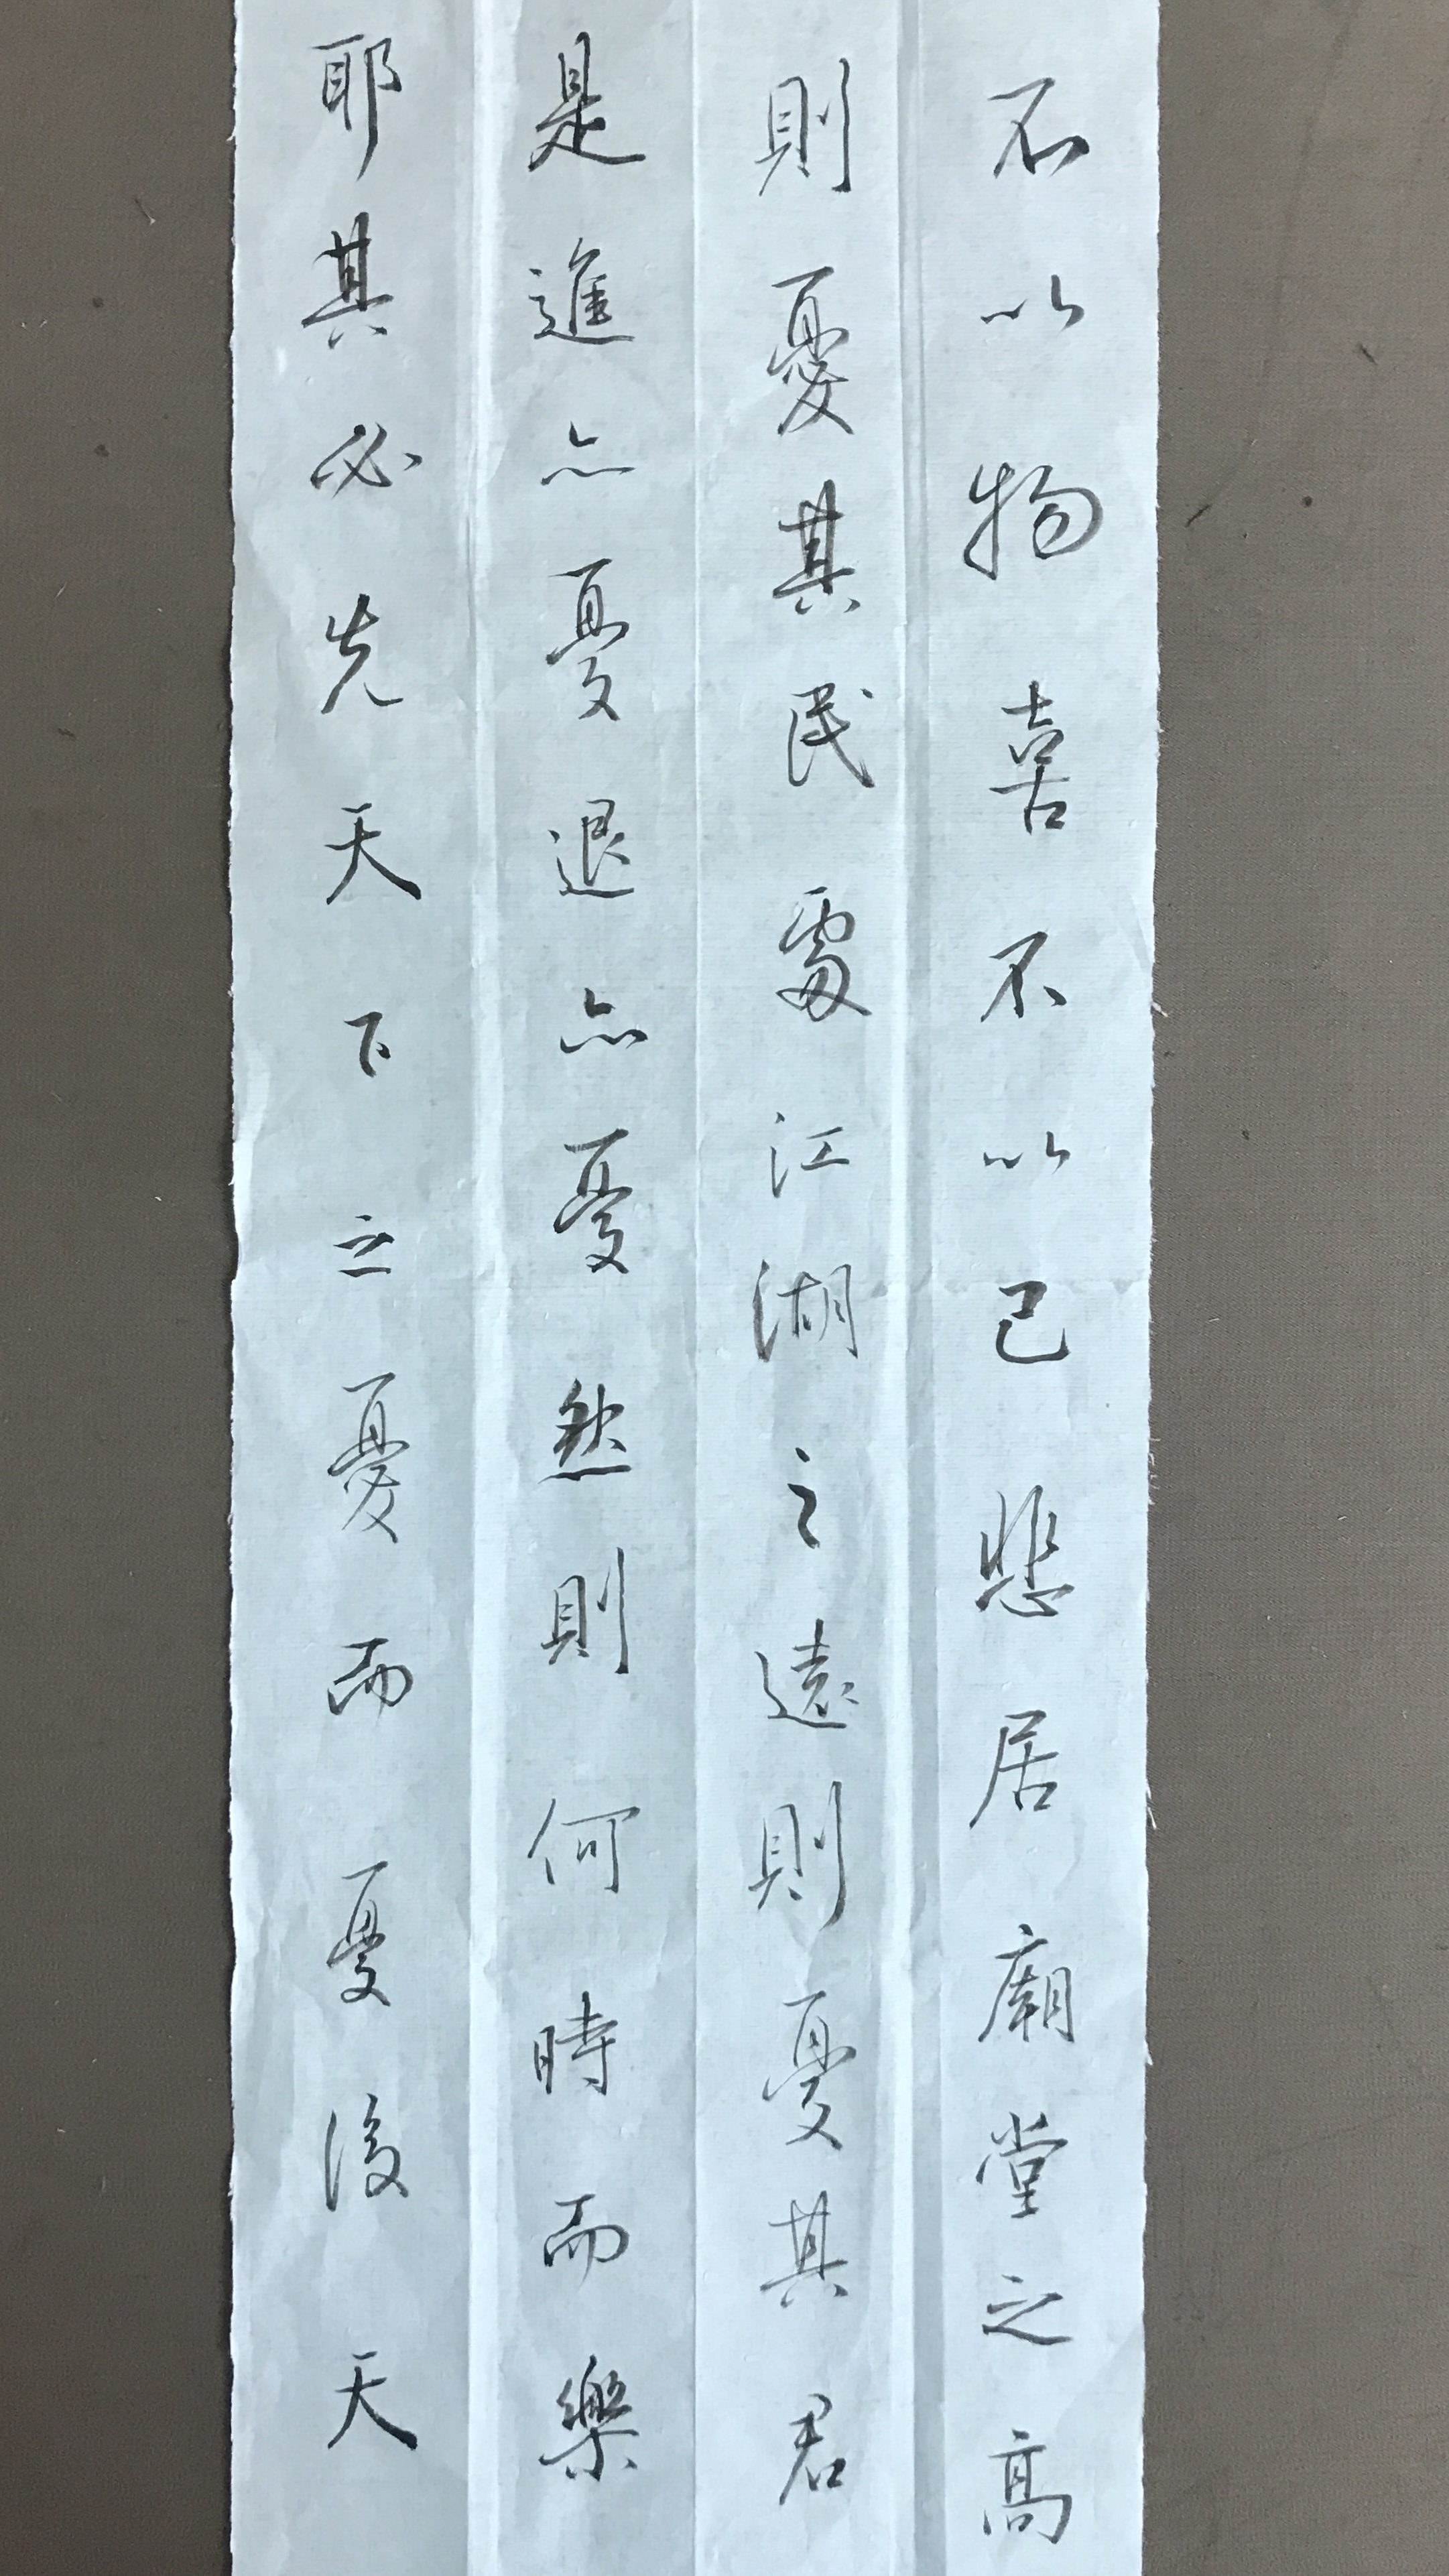 不以物喜不以己悲居廟堂之高
則憂其民處江湖之遠則憂其君
是進亦憂退亦憂然則何時而樂
耶其必先天下之憂而憂後天